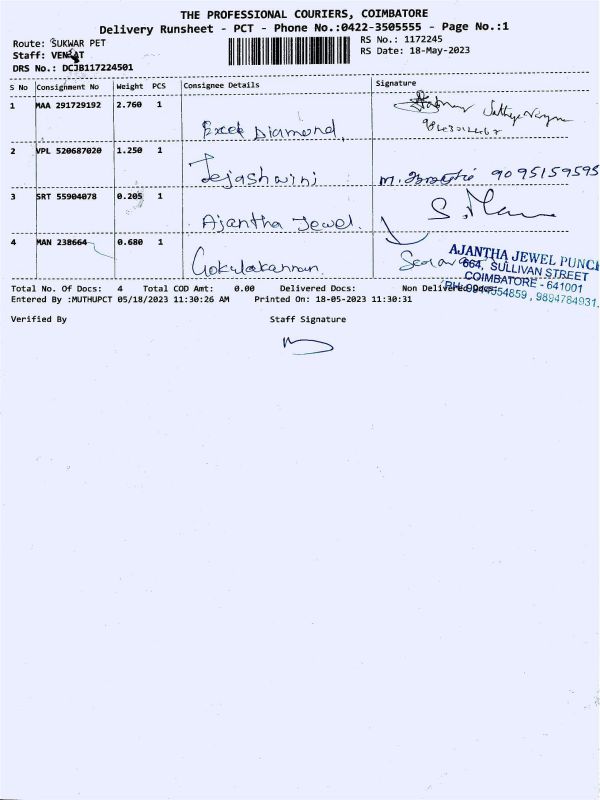 THE PROFESSIONAL COURIERS, COIMBATORE
Delivery Runsheet - PCT - Phone No.:0422-3505555 - Page No.:1
Route: SUKWAR PET
RS No.: 1172245
Staff: VENKAT
RS Date: 18-May-2023
DRS No.: DCJB117224501
S No Consignment No Weight PCS Consignee Details Signature
1 MAA 291729192 2.760 1
Excel Diamond,
2 VPL 520687020 1.250 1
Tejashwini 9095159595
3 SRT 55904078 0.205 1
Ajantha Jewel.
4 MAN 238664 0.680 1
Gokulakannan.
AJANTHA JEWEL PUNCH
664, SULLIVAN STREET
COIMBATORE - 641001
PH: 9944554859, 9894784931.
Total No. Of Docs: 4 Total COD Amt: 0.00 Delivered Docs: Non Delivered Docs:
Entered By :MUTHUPCT 05/18/2023 11:30:26 AM Printed On: 18-05-2023 11:30:31
Verified By Staff Signature